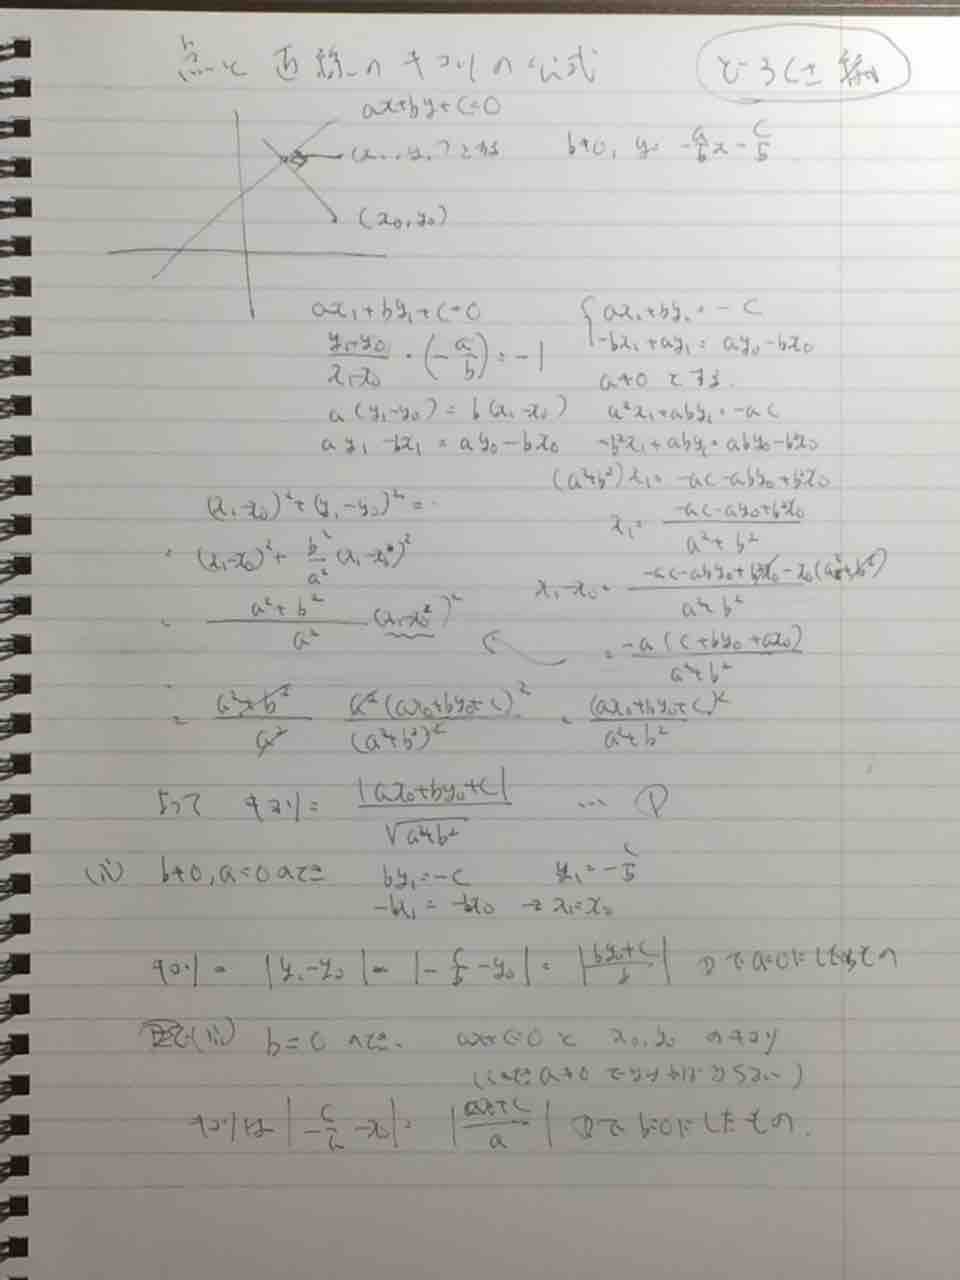 点と直線のキョリの公式
どろくさ編
ax+by+c=0
(x₁, y₁)とする
b≠0, y=-a/b x - c/b
(x₀, y₀)
ax₁+by₁+c=0
(y₁-y₀)/(x₁-x₀)・(-a/b)=-1
a(y₁-y₀)=b(x₁-x₀)
ay₁-bx₁=ay₀-bx₀
{ax₁+by₁=-c
-bx₁+ay₁=ay₀-bx₀
a≠0とする.
a²x₁+aby₁=-ac
-b²x₁+aby₁=aby₀-b²x₀
(a²+b²)x₁=-ac-aby₀+b²x₀
x₁=(-ac-ay₀+b²x₀)/(a²+b²)
x₁-x₀=(-ac-aby₀+b²x₀-x₀(a²+b²))/(a²+b²)
=-a(c+by₀+ax₀)/(a²+b²)
(x₁-x₀)²+(y₁-y₀)²=
=(x₁-x₀)²+b²/a²(x₁-x₀)²
=(a²+b²)/a² (x₁-x₀²)²
=(a²+b²)/a² a²(ax₀+by₀+c)²/(a²+b²)²=(ax₀+by₀+c)²/(a²+b²)
よって キョリ=|ax₀+by₀+c|/√(a²+b²) … ①
(ii) b≠0, a=0のとき by₁=-c y₁=-c/b
-bx₁=-bx₀ → x₁=x₀
キョリ=|y₁-y₀|=|-c/b-y₀|=|(by₀+c)/b| ①でa=0にしたもの
(iii) b=0のとき. ax+c=0と x₀, y₀ のキョリ
(このときa≠0でなければならない)
キョリは|-c/a-x₀|=|(ax+c)/a| ①でb=0にしたもの.